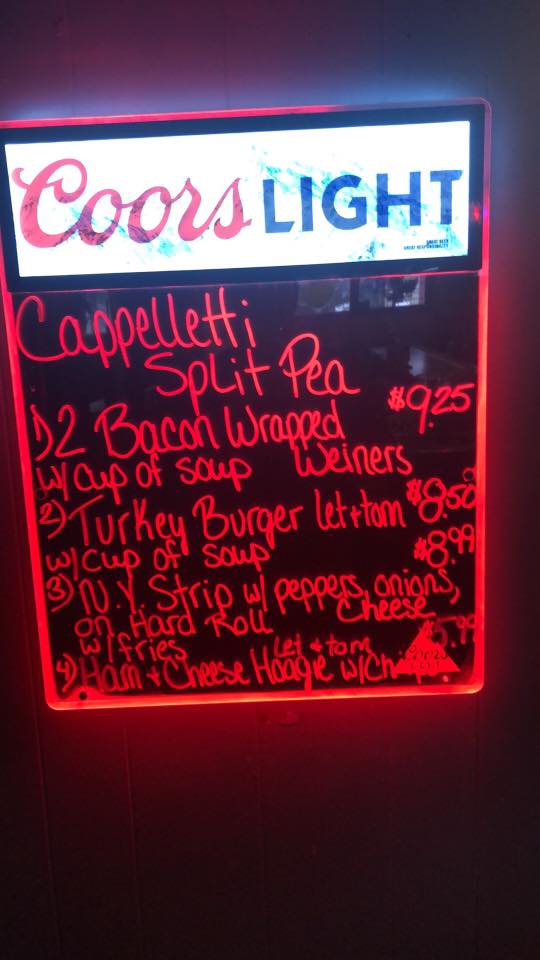 Coors LIGHT
GREAT BEER
GREAT RESPONSIBILITY
Cappelletti
Split Pea
1) 2 Bacon Wrapped $9.25
w/ cup of soup Weiners
2) Turkey Burger let + tom $8.50
w/ cup of soup $8.99
3) N.Y. Strip w/ peppers, onions,
on Hard Roll Cheese
w/ fries Let + tom .99
4) Ham + Cheese Hoagie w/
Coors